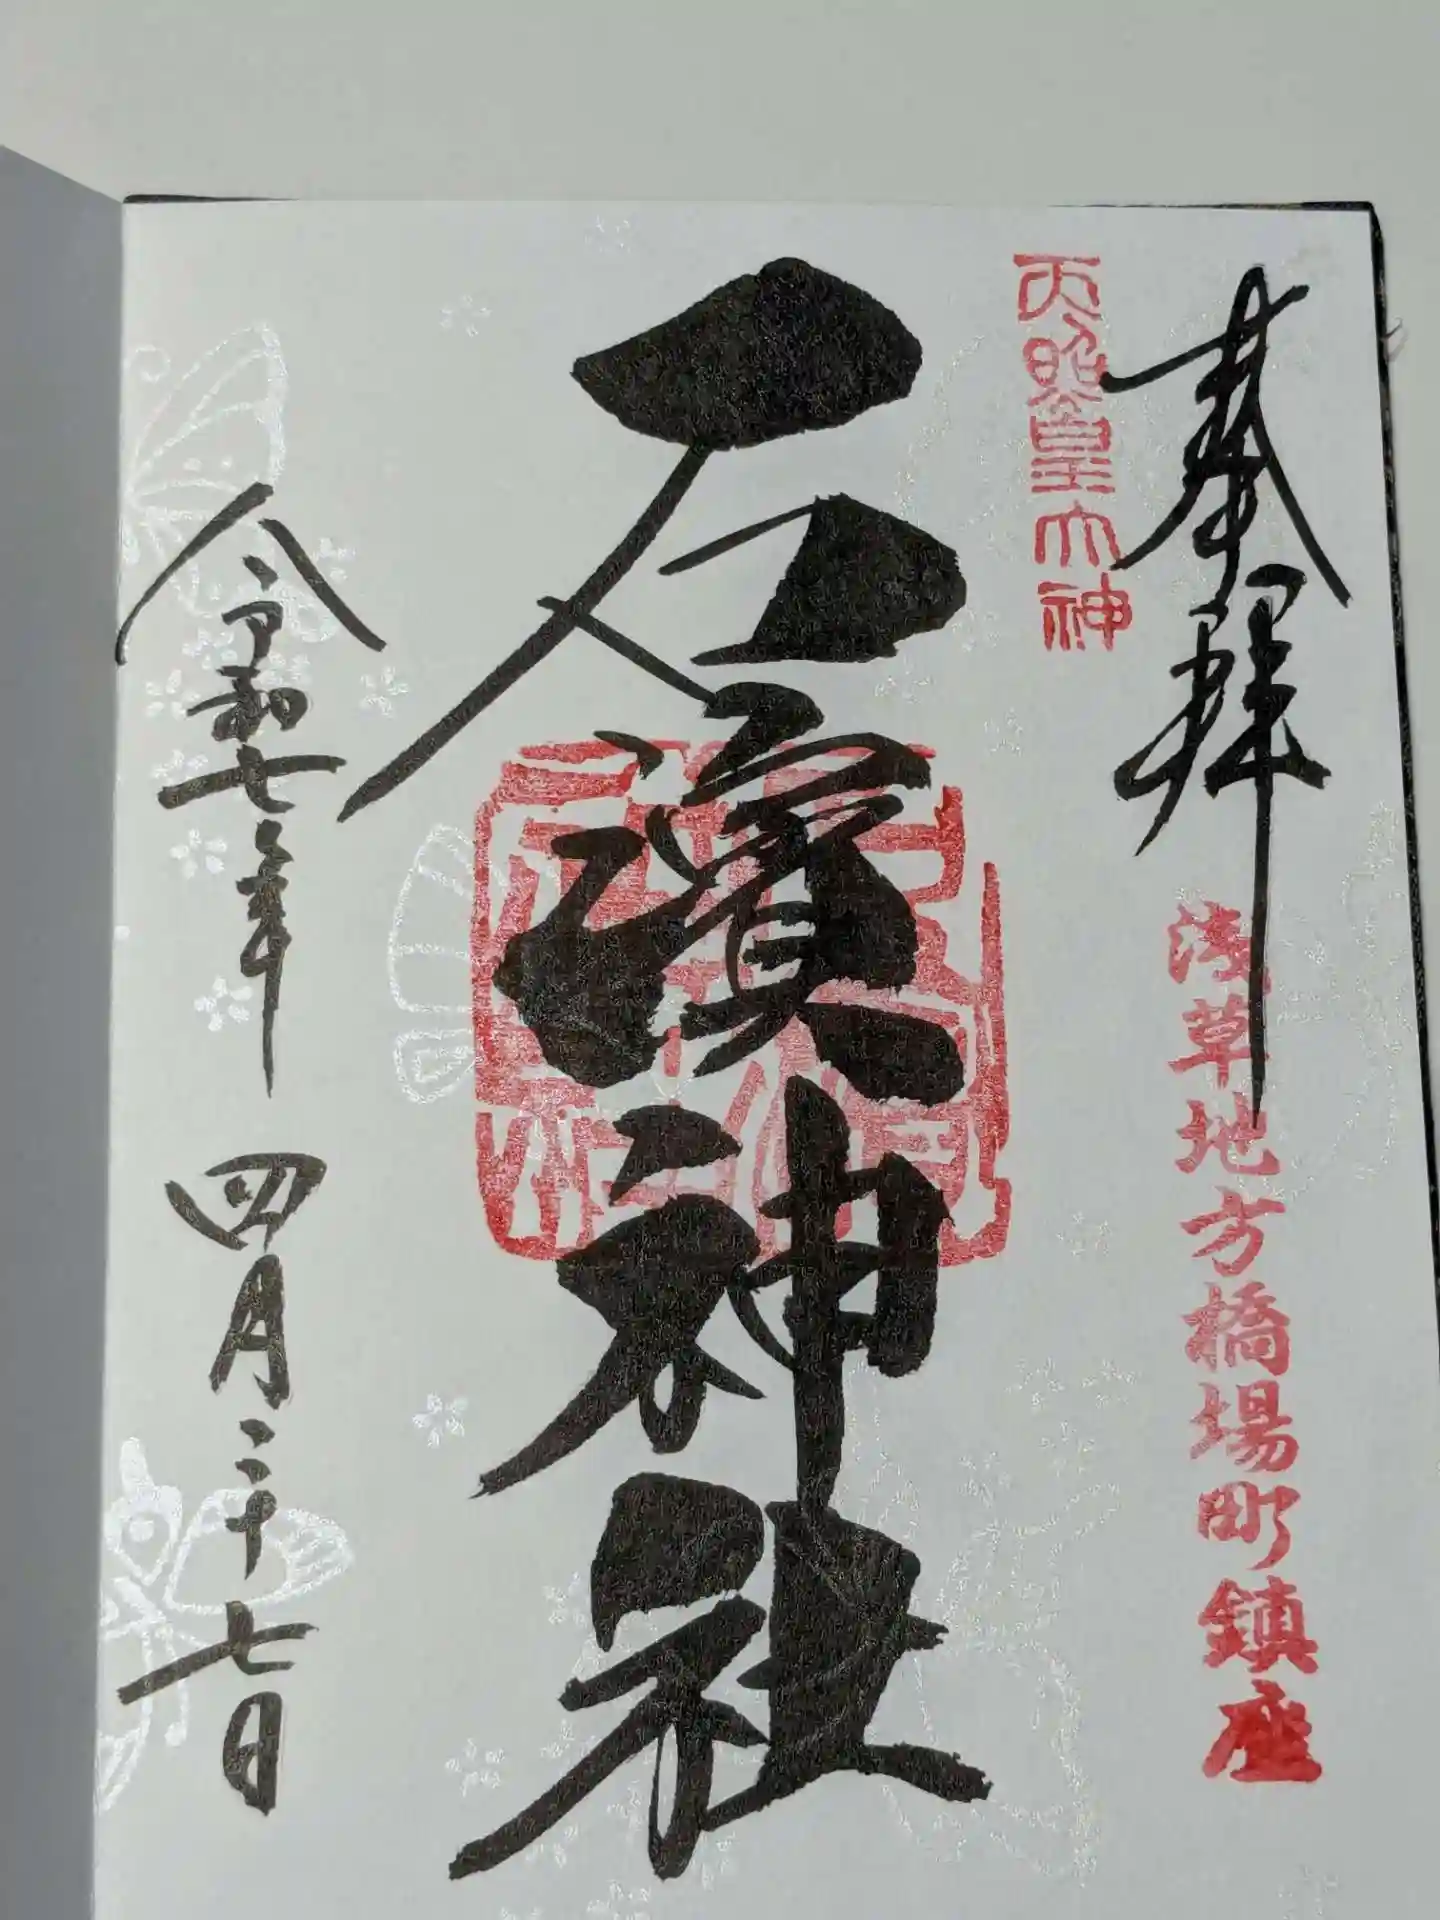 奉拝
浅草地方橋場町鎮座
天照皇大神
石濱神社
令和七年 四月二十七日